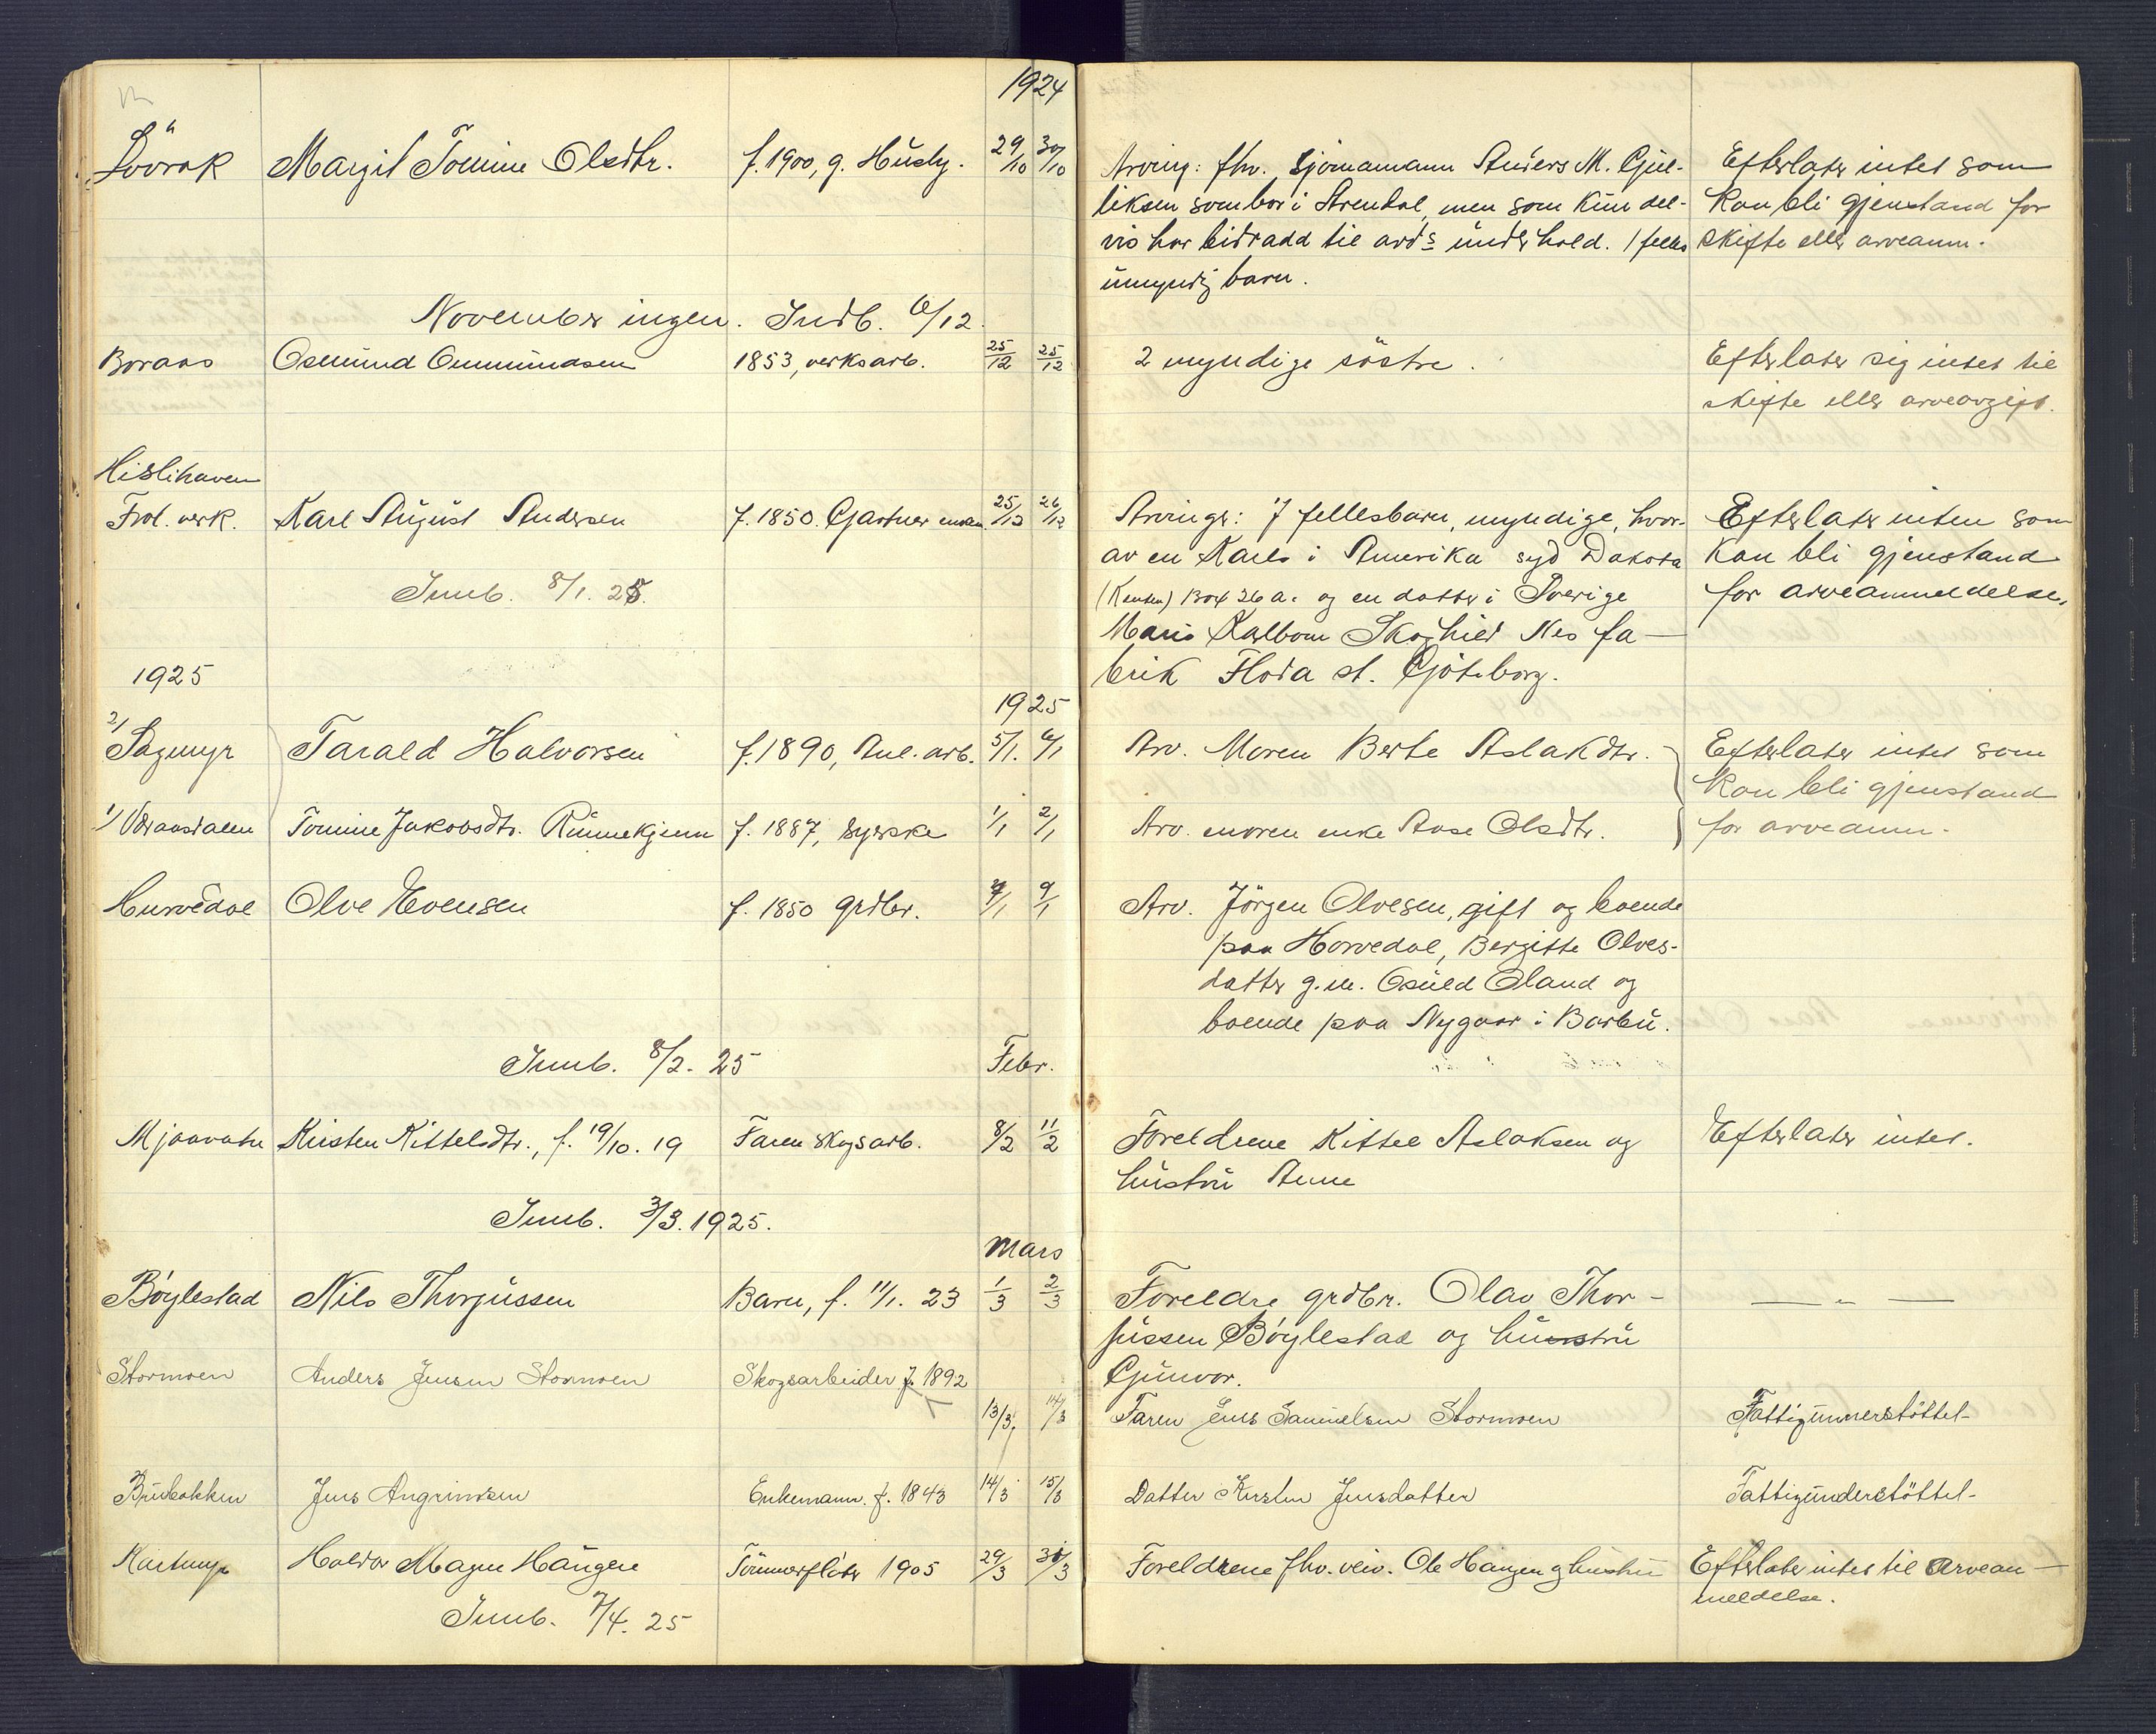 1924
Lövrak Margit Tomine Olsdtr. f. 1900, g. Husby. 29/10 30/10 Arving: fhv. sjömamann Anders M. Gjul-
liksen som bor i Arendal, men som kun del-
vis har bidradd til avds underhold. 1 felles
umyndig barn.
Efterlater intet som
kan bli gjenstand for
skifte eller arveanm.
November ingen. Indb. 6/12.
Boraas Osmund Ommundsen 1853, verksarb. 25/12 25/12 2 myndige söstre. Efterlater sig intet til
skifte eller arveavgift.
Hislihaven
Frol. verk. Karl August Andersen f. 1850. Gartner enkem. 25/12 26/12 Arvinger: 7 fellesbarn, myndige, hvor-
av en Karls i Amerika syd Dakota
Box 26 a. og en datter i Sverige
Maris Karlbom Skoghied Nes fa-
brik Floda st. Gjöteborg.
Efterlater inten som
kan bli gjenstand
for arveanmeldelse.
Innb. 8/1. 25.
1925
1925
2/ Sagmyr Tarald Halvorsen f. 1890, Anl. arb. 5/1. 6/1 Arv. Moren Berte Aslakdtr. Efterlater intet som
kan bli gjenstand
1/ Tomine Jakobsdtr. Rinnekjenn f. 1887, syerske 1/1 2/1 Arv. moren enke Aase Olsdtr. for arveanm.
Hurvedal Olve Evensen f. 1850 grdbr. 7/1 9/1 Arv. Jörgen Olvesen, gift og boende
paa Horvedal, Bergitte Olves-
datter g.m. Osuld Oland og
boende paa Nygaar i Barbu.
Innb. 8/2. 25 Febr.
Mjaavatn Kristen Kittelsdtr., f. 19/10. 19 Faren skogsarb. 8/2 11/2 Foreldrene Kittel Aslaksen og
hustru Anne
Efterlater intet.
Innb. 3/3. 1925.
Mars
Bøylestad Nils Thorjussen Barn, f. 11/1. 23 1/3 2/3 Foreldre grdbr. Olav Thor-
jussen Bøylestad og hustru
Gunvor.
— „ —
Stormoen Anders Jensen Stormoen Skogsarbeider f. 1892
13/3. 14/3 Faren Jens Samuelsen Stormoen Fattigunnerstöttel-
Brubakken Jens Angrimsen Enkemann. f. 1843 14/3 15/3 Datter Kirsten Jensdatter Fattigunderstöttel-
Halvor Magne Haugen Tömmerfløter 1905 29/3 30/3 Foreldrene fhv. veiv. Ole Haugen g hustru Efterlater intet til arvean-
meldelse.
Innb. 7/4. 25